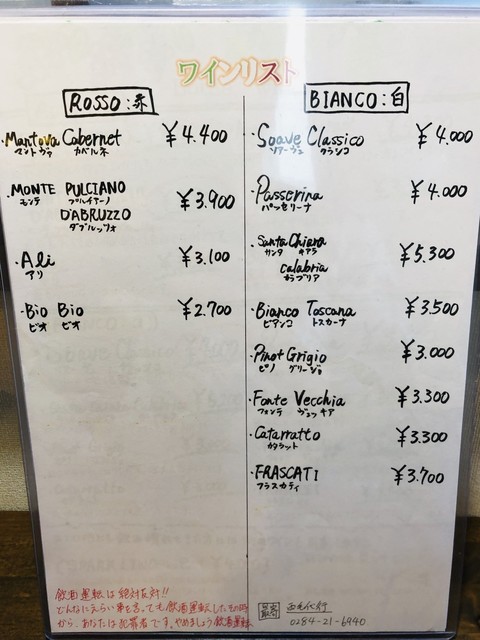 ワインリスト
ROSSO:赤
・Mantova Cabernet ¥4.400
マントヴァ カベルネ
・MONTE PULCIANO ¥3.900
モンテ プルイアーノ
D'ABRUZZO
ダブルッツォ
・Ali ¥3.100
アリ
・Bio Bio ¥2.700
ビオ ビオ
BIANCO:白
・Soave Classico ¥4.000
ソアーヴェ クラシコ
・Passerina ¥4.000
パッセリーナ
・Santa Chiara ¥5.300
サンタ キアラ
Calabria
カラブリア
・Bianco Toscana ¥3.500
ビアンコ トスカーナ
・Pinot Grigio ¥3.000
ピノ グリージョ
・Fonte Vecchia ¥3.300
フォンテ ヴェッキア
・Catarratto ¥3.300
カタラット
・FRASCATI ¥3.700
フラスカティ
飲酒運転は絶対反対!!
どんなにえらい事を言っても飲酒運転したその時
から、あなたは犯罪者です。やめましょう飲酒運転
代行
0284-21-6940